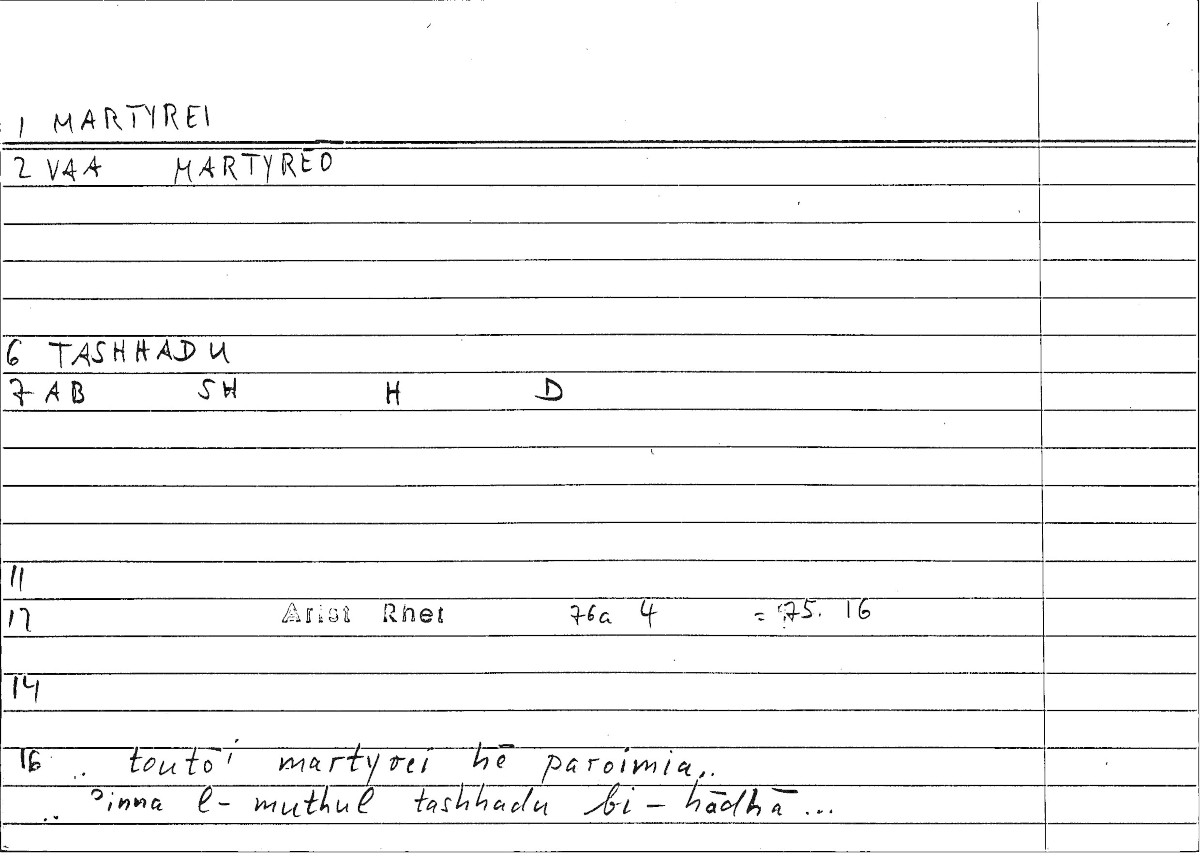 1 MARTYREI
2 VAA MARTYREŌ
6 TASHHADU
7 AB SH H D
11
12 Arist Rhet 76a 4 = 75. 16
14
16 .. toutōi martyrei hē paroimia..
.. ʾinna l- muthul tashhadu bi - hādhā ...